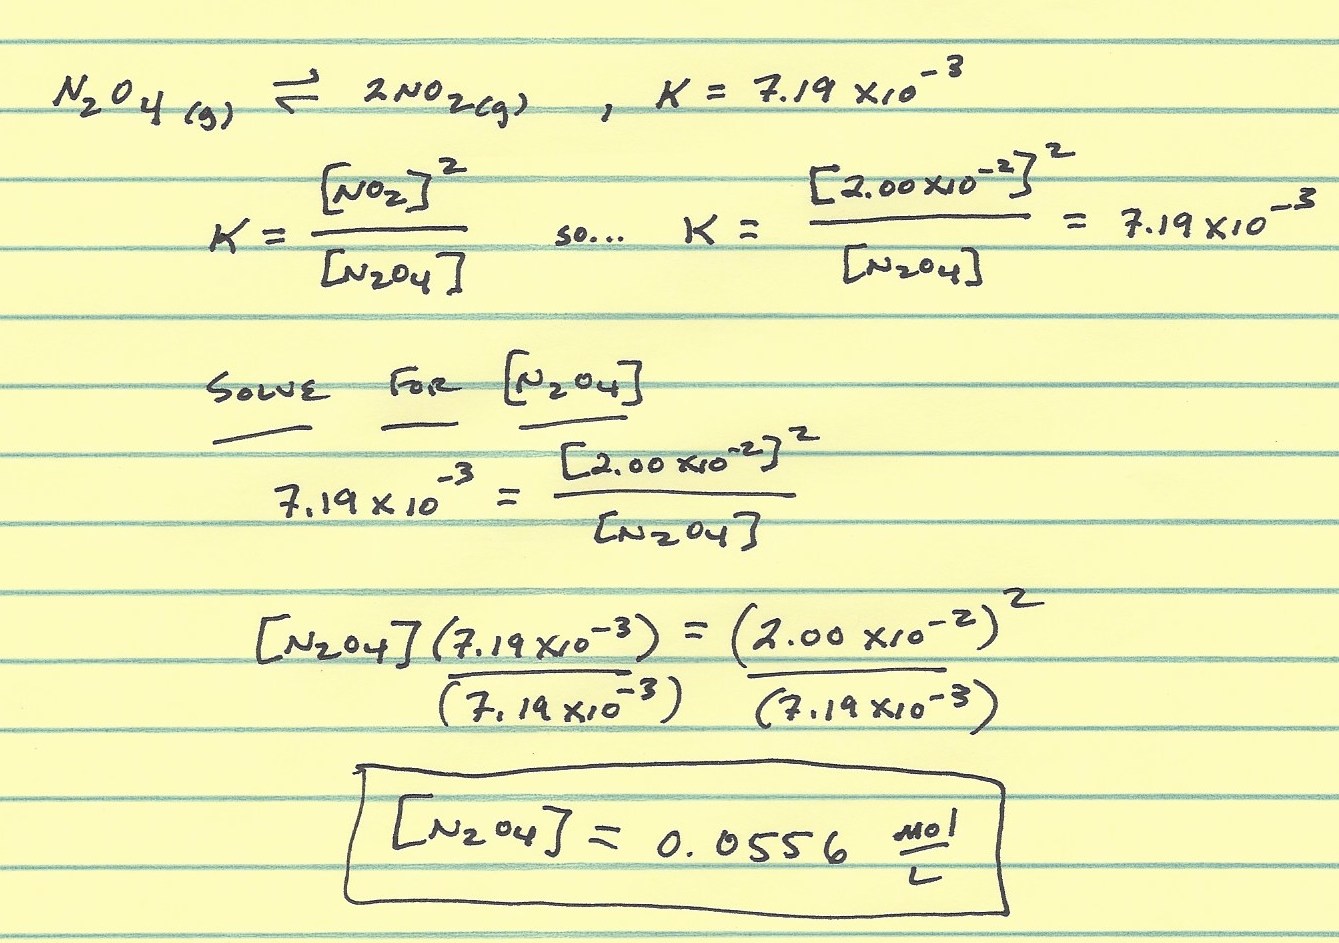 N₂O₄(g) ⇌ 2NO₂(g) , K = 7.19 x10⁻³
K = [NO₂]² / [N₂O₄] so... K = [2.00 x10⁻²]² / [N₂O₄] = 7.19 x10⁻³
SOLVE FOR [N₂O₄]
7.19 x 10⁻³ = [2.00 x10⁻²]² / [N₂O₄]
[N₂O₄] (7.19 x10⁻³) / (7.19 x10⁻³) = (2.00 x10⁻²)² / (7.19 x10⁻³)
[N₂O₄] = 0.0556 mol/L